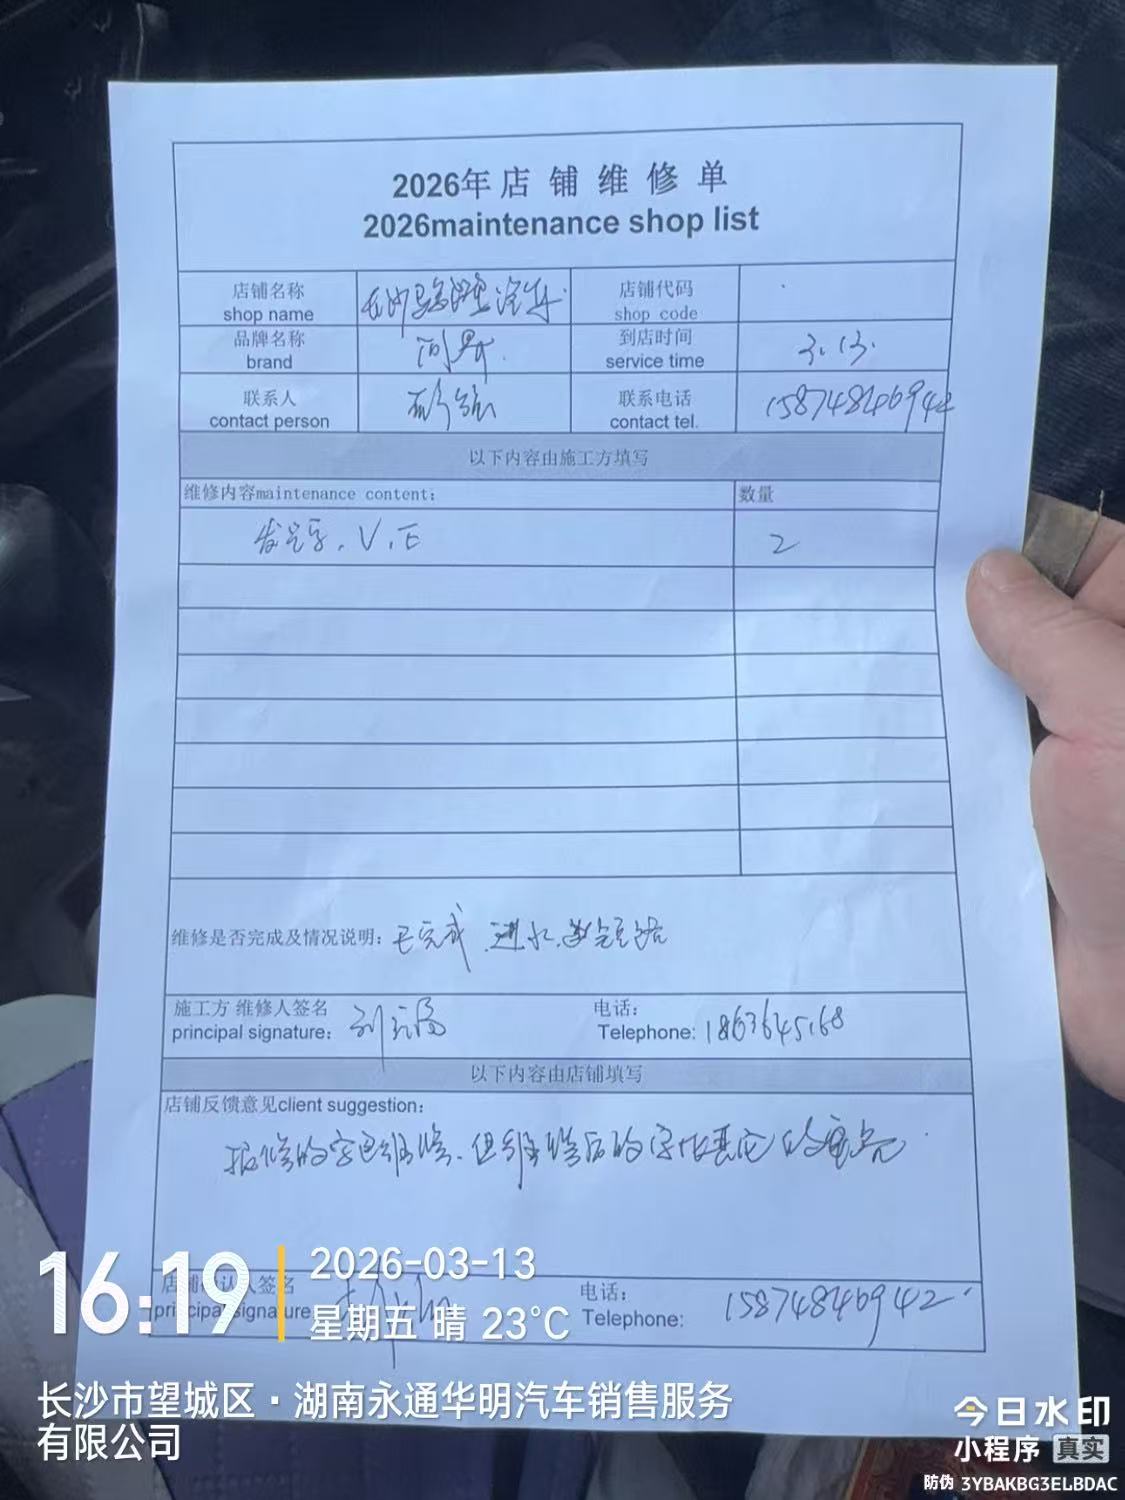 2026年店铺维修单
2026maintenance shop list
店铺名称 长沙 汽车 店铺代码
shop name shop code
品牌名称 到店时间 3.13.
brand service time
联系人 联系电话 15874846942
contact person contact tel.
以下内容由施工方填写
维修内容maintenance content: 数量
发光字. V. E 2
维修是否完成及情况说明: 已完成 进水 短路
施工方 维修人签名 刘 电话:
principal signature: Telephone: 1863645168
以下内容由店铺填写
店铺反馈意见client suggestion:
报修的字已维修.但维修后的字比其它的更亮
店铺确认人签名 电话:
principal signature: Telephone: 15874846942
16:19
2026-03-13
星期五 晴 23°C
长沙市望城区·湖南永通华明汽车销售服务
有限公司
今日水印
小程序 真实
防伪 3YBAKBG3ELBDAC